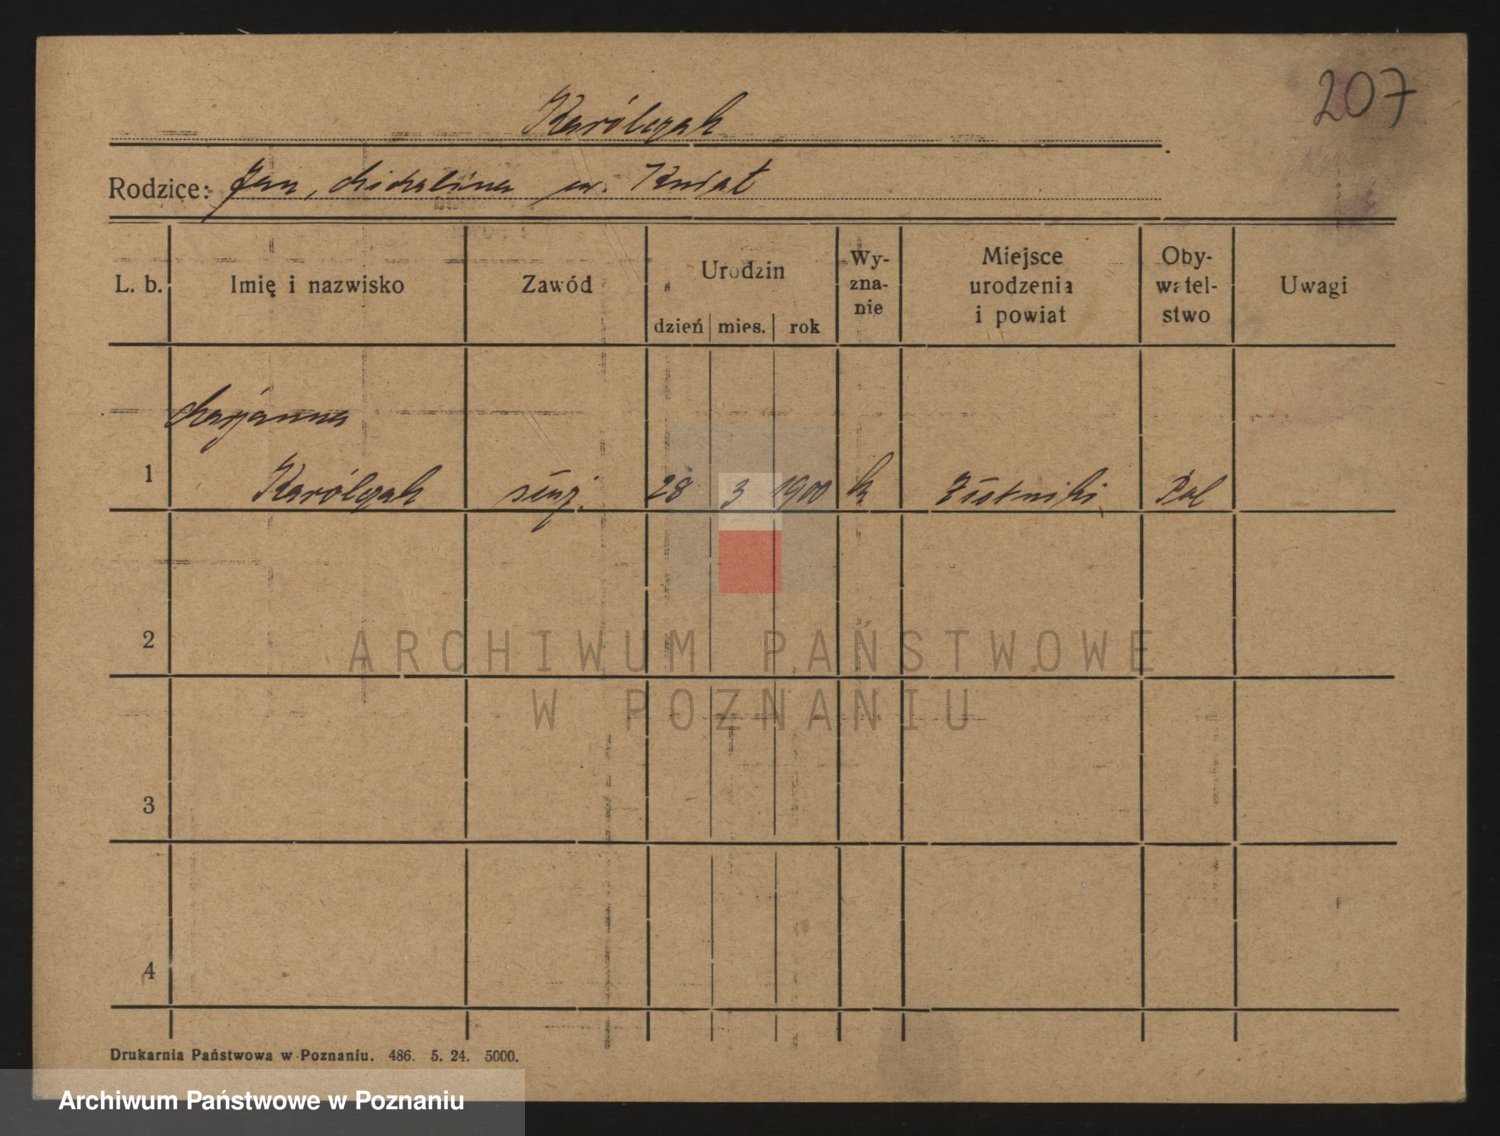 207
Karólczak
Rodzice: Jan, Michalina ur. Kwiat
L. b. Imię i nazwisko Zawód Urodzin dzień mies. rok Wy-znanie Miejsce urodzenia i powiat Oby-watel-stwo Uwagi
Marjanna
1 Karólczak służ. 28 3 1900 k Złotniki Pol
2
3
4
ARCHIWUM PAŃSTWOWE
W POZNANIU
Drukarnia Państwowa w Poznaniu. 486. 5. 24. 5000.
Archiwum Państwowe w Poznaniu